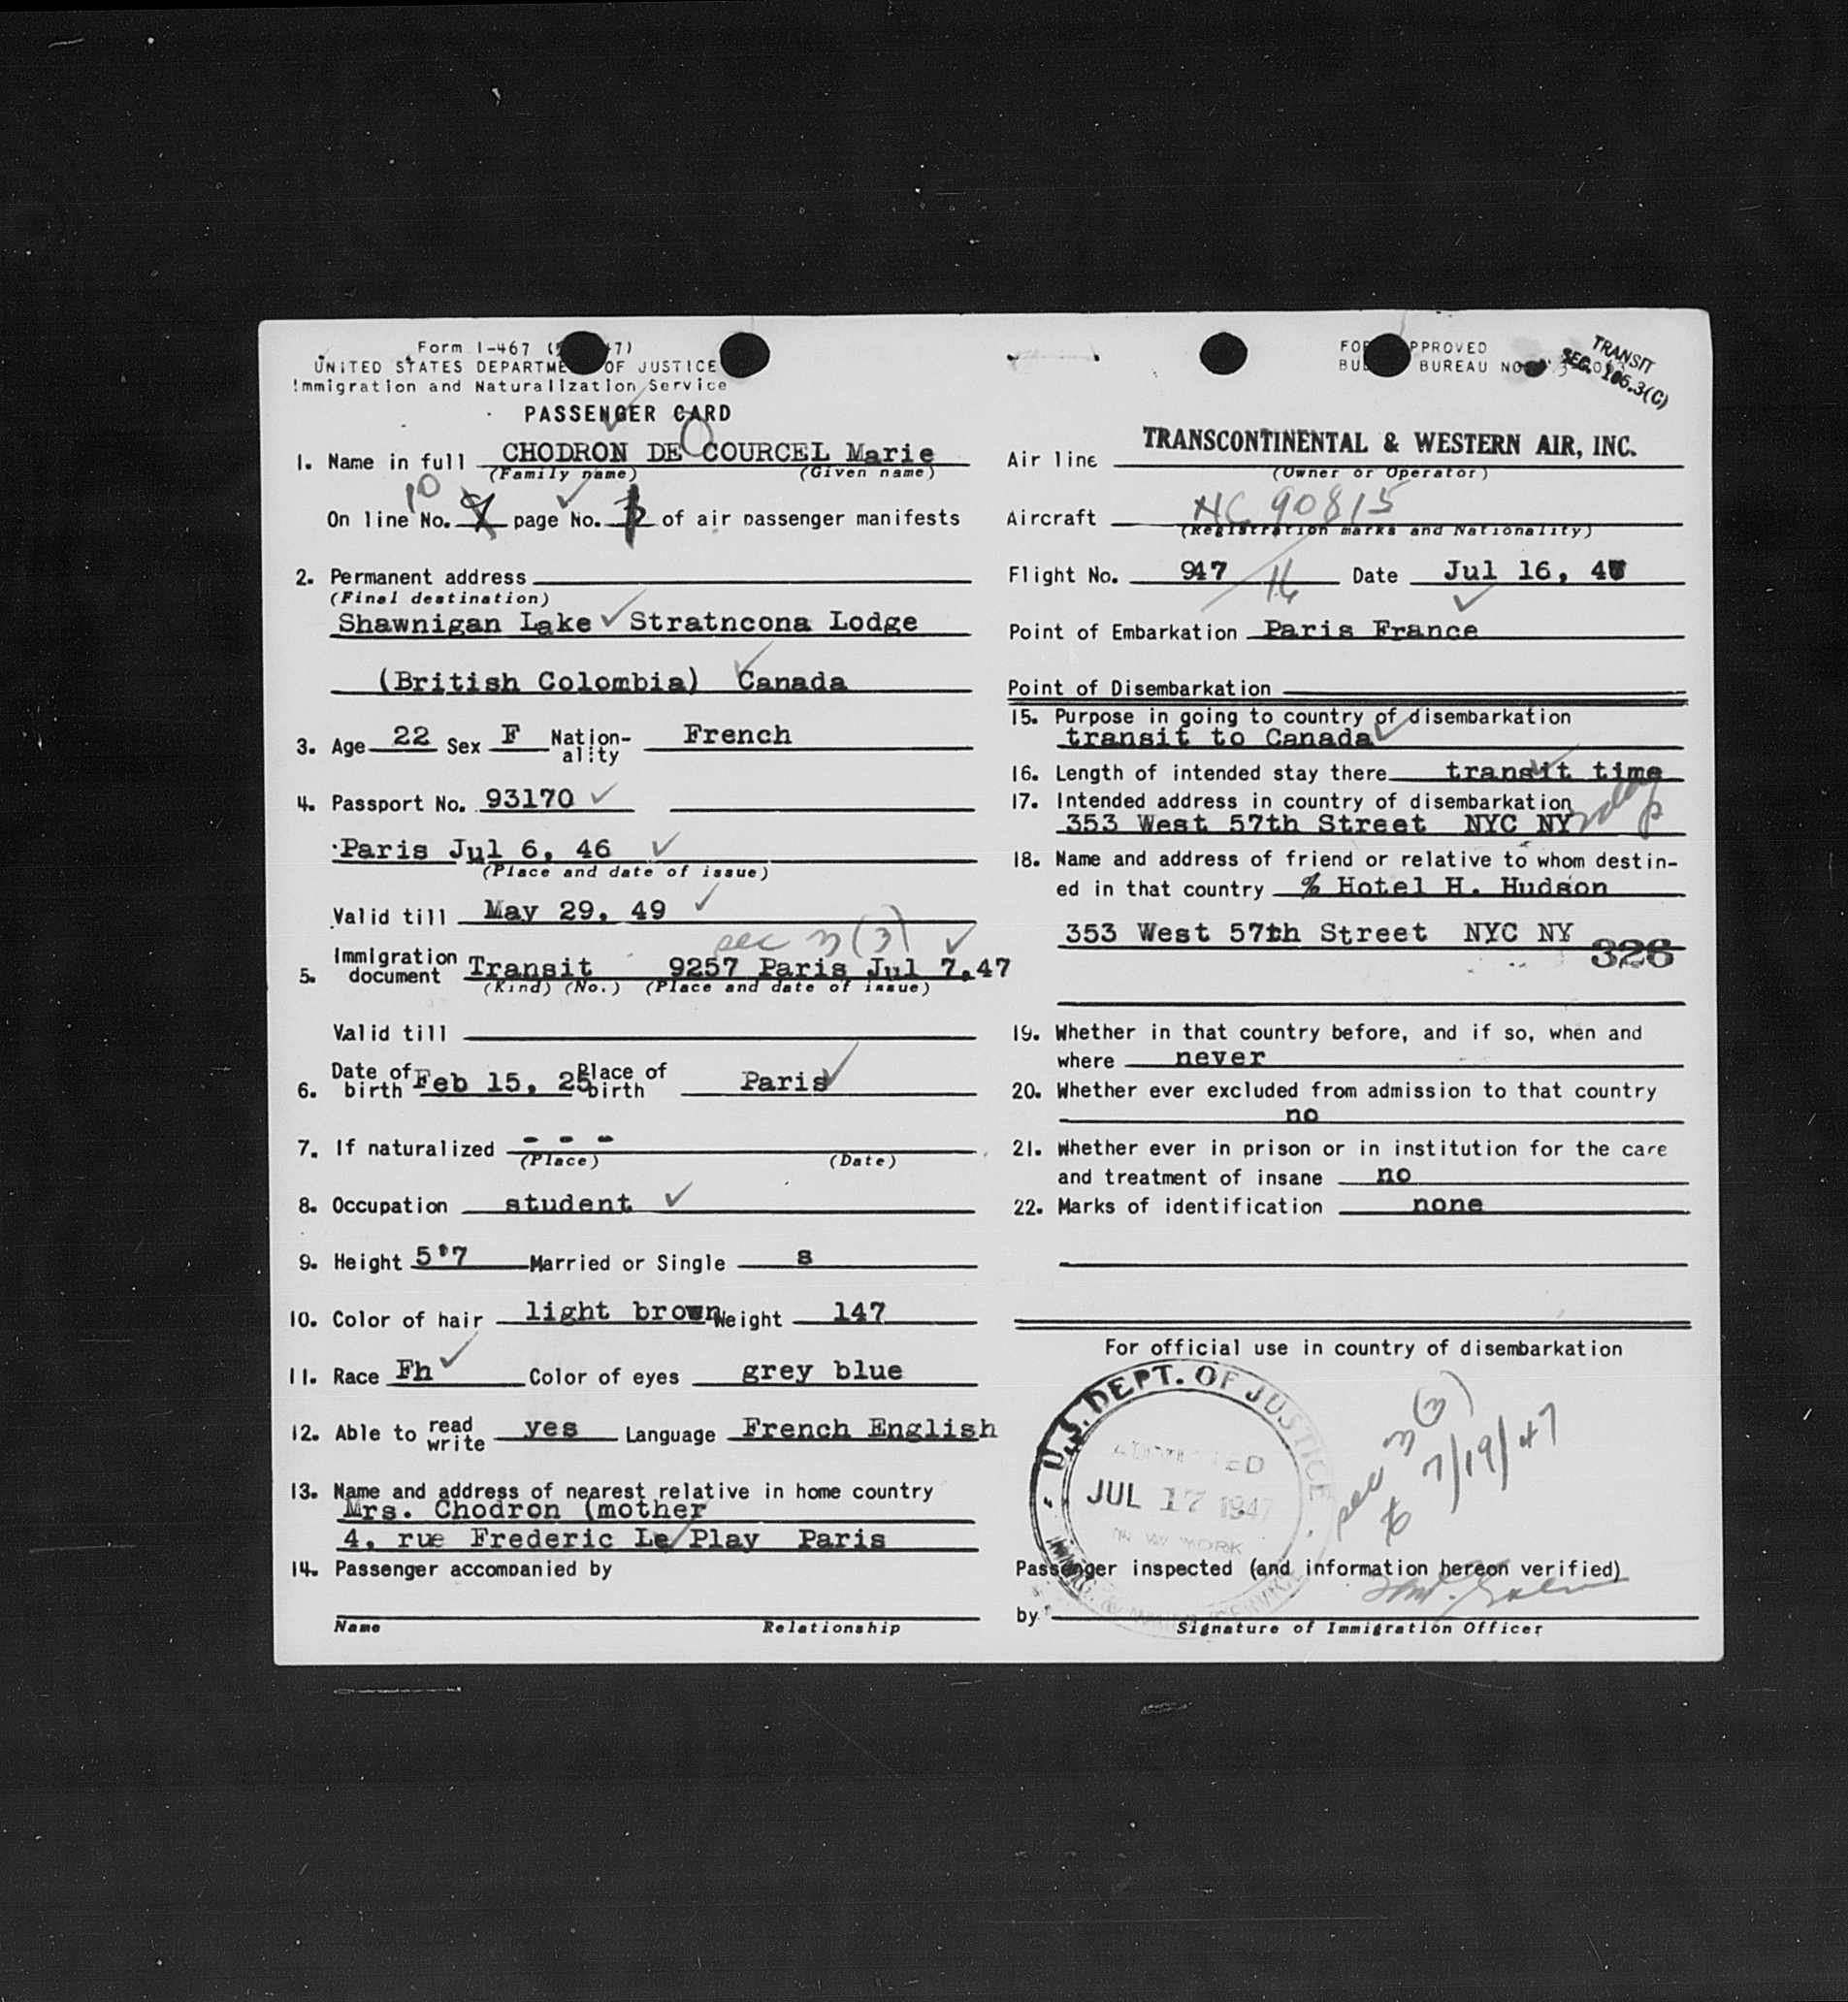 Form I-467 ( 47)
UNITED STATES DEPARTME OF JUSTICE
Immigration and Naturalization Service
PASSENGER CARD
1. Name in full CHODRON DE COURCEL Marie
(Family name) (Given name)
10
On line No. 9 page No. of air passenger manifests
2. Permanent address
(Final destination)
Shawnigan Lake Stratncona Lodge
(British Colombia) Canada
3. Age 22 Sex F Nation-ality French
4. Passport No. 93170
Paris Jul 6, 46
(Place and date of issue)
Valid till May 29, 49
sec 3 (3)
5. Immigration document Transit 9257 Paris Jul 7,47
(Kind) (No.) (Place and date of issue)
Valid till
6. Date of birth Feb 15, 25 Place of birth Paris
7. If naturalized - - -
(Place) (Date)
8. Occupation student
9. Height 5'7 Married or Single s
10. Color of hair light brown Weight 147
11. Race Fh Color of eyes grey blue
12. Able to read write yes Language French English
13. Name and address of nearest relative in home country
Mrs. Chodron (mother
4, rue Frederic Le Play Paris
14. Passenger accompanied by
Name Relationship
FO PPROVED
BU BUREAU NO
TRANSIT
SEC. 106.3(C)
Air line TRANSCONTINENTAL & WESTERN AIR, INC.
(Owner or Operator)
Aircraft NC 90815
(Registration marks and Nationality)
Flight No. 947 /16 Date Jul 16, 47
Point of Embarkation Paris France
Point of Disembarkation
15. Purpose in going to country of disembarkation
transit to Canada
16. Length of intended stay there transit time
17. Intended address in country of disembarkation
353 West 57th Street NYC NY
18. Name and address of friend or relative to whom destin-
ed in that country % Hotel H. Hudson
353 West 57th Street NYC NY
326
19. Whether in that country before, and if so, when and
where never
20. Whether ever excluded from admission to that country
no
21. Whether ever in prison or in institution for the care
and treatment of insane no
22. Marks of identification none
For official use in country of disembarkation
U.S. DEPT. OF JUSTICE
ADMITTED
JUL 17 1947
NEW YORK
sec 3 (3)
to 7/19/47
Passenger inspected (and information hereon verified)
by
Signature of Immigration Officer